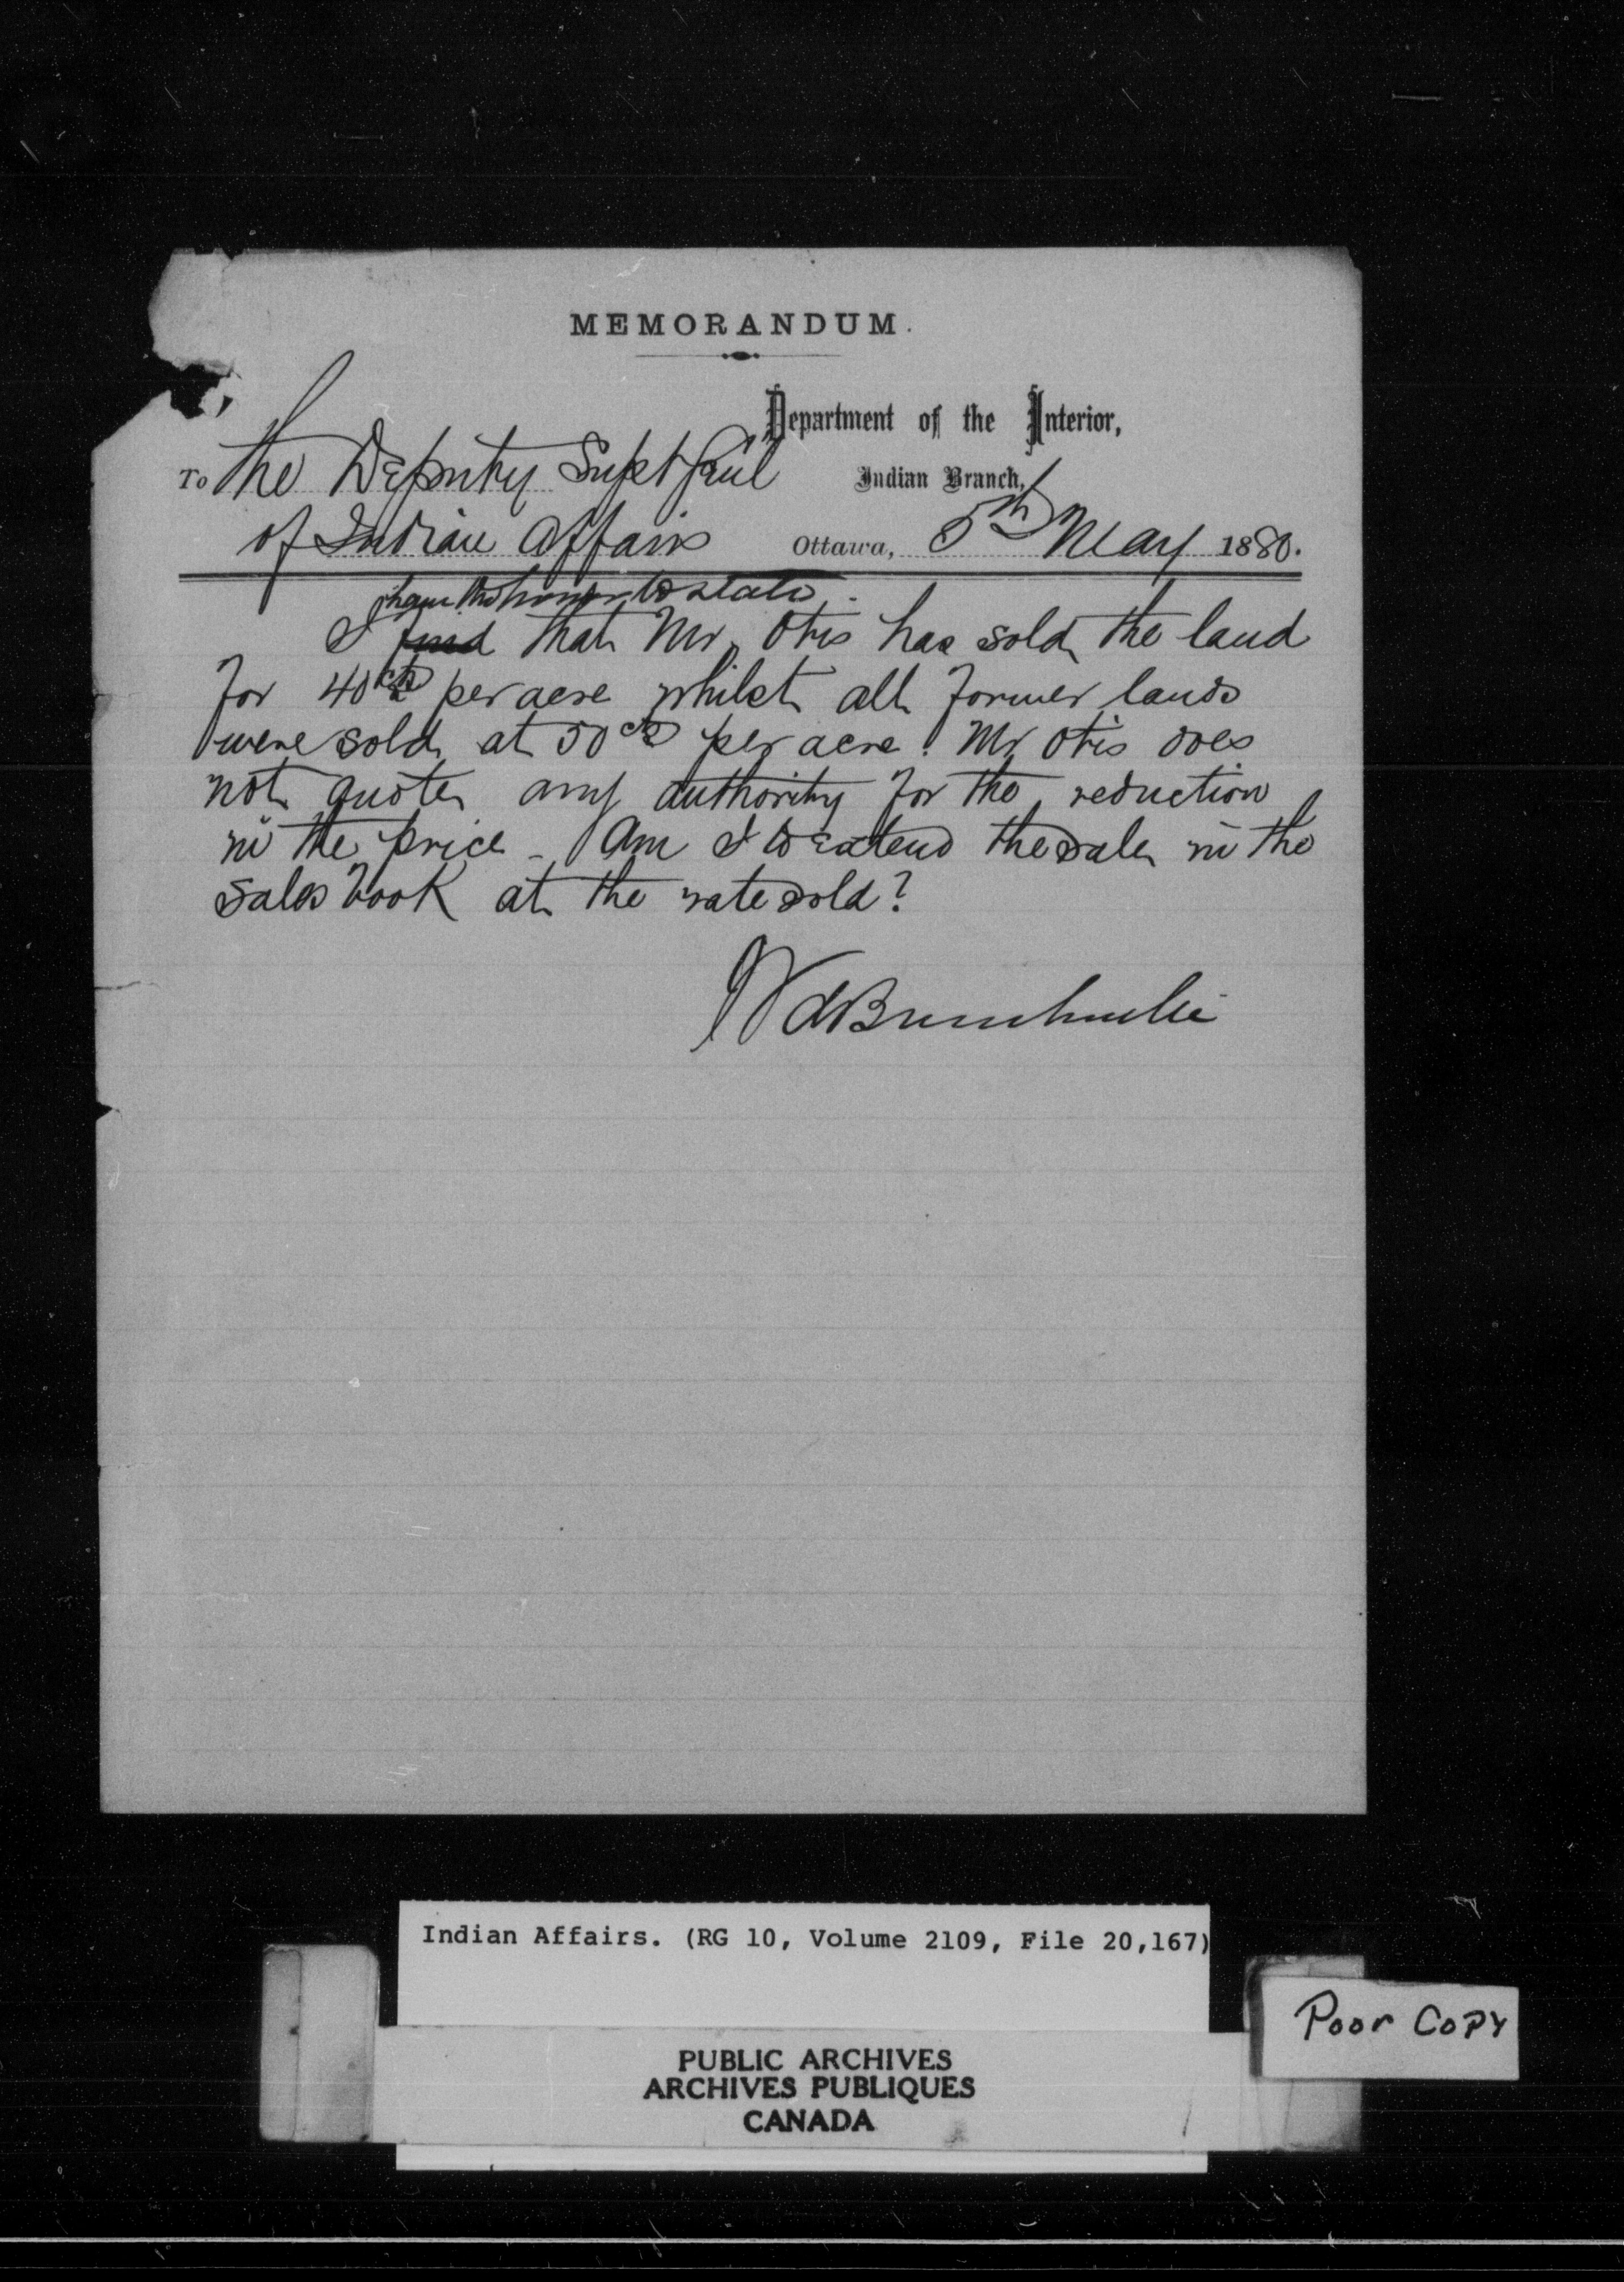 MEMORANDUM.
Department of the Interior,
To The Deputy Supt Genl
Indian Branch,
of Indian Affairs
Ottawa, 5th May 1880.
have the honor to state
I find that Mr. Otis has sold the land
for 40cts per acre whilst all former lands
were sold at 50cts per acre. Mr Otis does
not quote any authority for the reduction
in the price - Am I to extend the sale in the
sales book at the rate sold?
Indian Affairs. (RG 10, Volume 2109, File 20,167)
Poor Copy
PUBLIC ARCHIVES
ARCHIVES PUBLIQUES
CANADA